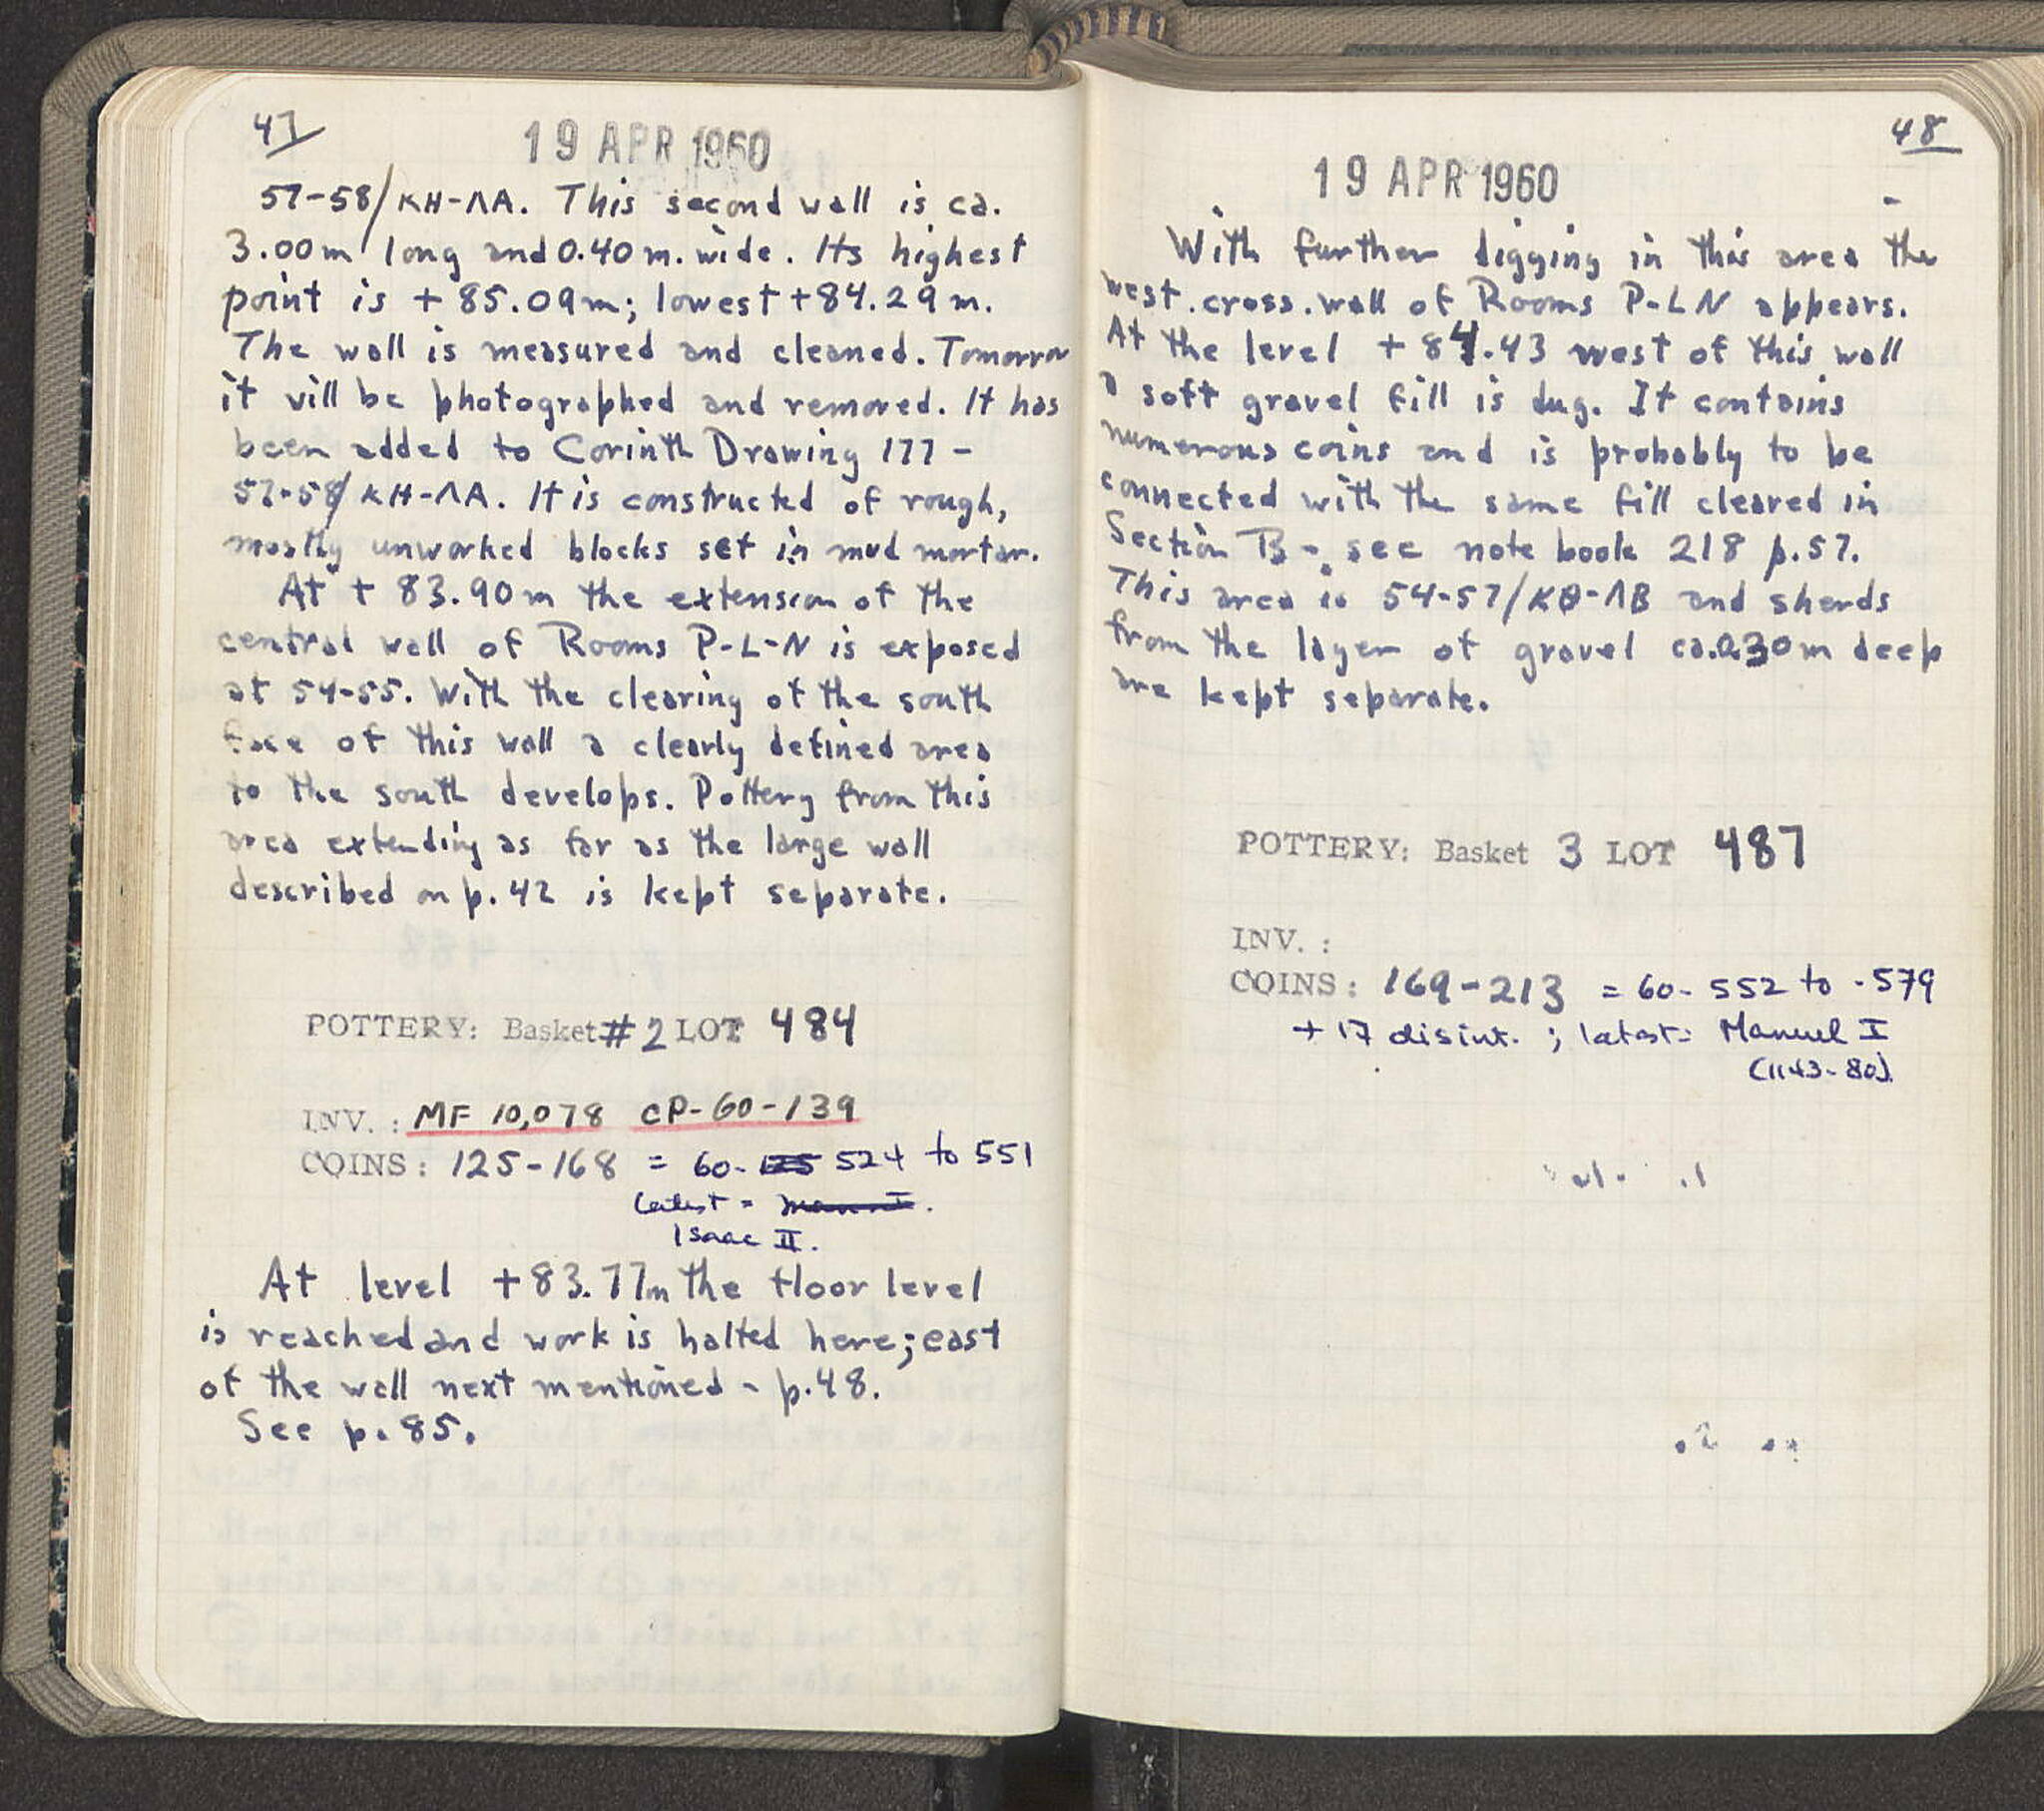 47
19 APR 1960
57-58/ΚΗ-ΛΑ. This second wall is ca.
3.00m long and 0.40 m. wide. Its highest
point is + 85.09m; lowest +84.29 m.
The wall is measured and cleaned. Tomorrow
it vill be photographed and removed. It has
been added to Corinth Drawing 177 -
57-58/ΚΗ-ΛΑ. It is constructed of rough,
mostly unworked blocks set in mud mortar.
At + 83.90m the extension of the
central wall of Rooms P-L-N is exposed
at 54-55. With the clearing of the south
face of this wall a clearly defined area
to the south develops. Pottery from this
area extending as far as the large wall
described on p. 42 is kept separate.
POTTERY: Basket #2 LOT 484
INV. : MF 10,078 CP-60-139
COINS: 125-168 = 60-125 524 to 551
latest = Manuel I.
Isaac II.
At level +83.77m the floor level
is reached and work is halted here; east
of the wall next mentioned - p.48.
See p. 85.
48
19 APR 1960
With further digging in this area the
west cross wall of Rooms P-L N appears.
At the level + 84.43 west of this wall
a soft gravel fill is dug. It contains
numerous coins and is probably to be
connected with the same fill cleared in
Section B - see note book 218 p.57.
This area is 54-57/ΚΘ-ΛΒ and sherds
from the layer of gravel ca. 0.30m deep
are kept separate.
POTTERY: Basket 3 LOT 487
INV. :
COINS: 169-213 = 60- 552 to -579
+ 17 disint. ; latest: Manuel I
(1143-80)